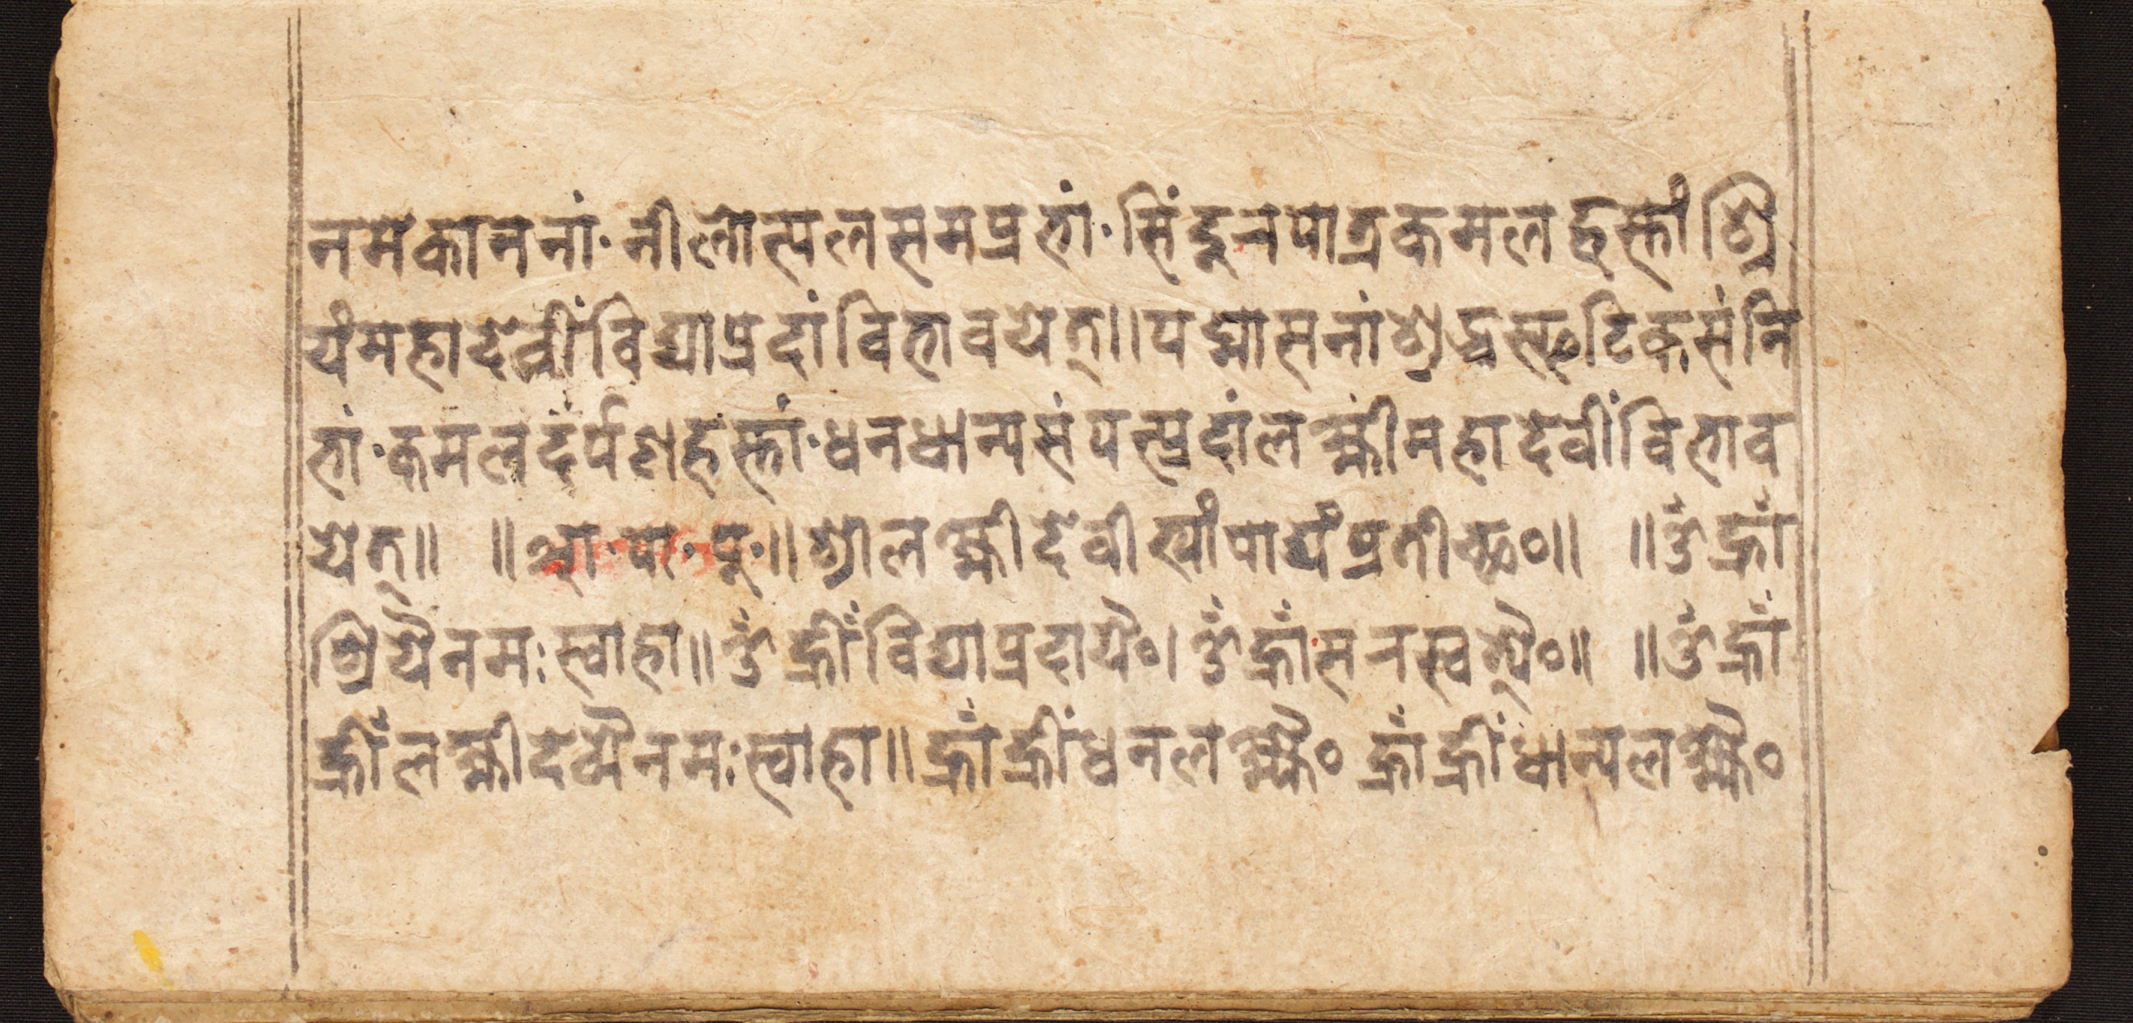 नमेकाननां॰ नीलोत्पलसमप्रभां॰ सिंदूरपात्रकमलहस्तां श्रि
यंमहादेवीं विद्याप्रदां विभावयेत्॥ पद्मासनां शुद्धस्फटिकसंनि
भां॰ कमलदर्पणहस्तां॰ धनधान्यसंपत्प्रदां लक्ष्मीमहादेवीं विभाव
येत्॥ ॥ आ॰ पा॰ पू॰॥ श्रीलक्ष्मीदेवीभ्यां पाद्यं प्रतीच्छ०॥ ॥ ॐ ह्रां
श्रियै नमः स्वाहा॥ ॐ ह्रीं विद्याप्रदायै०। ॐ ह्रां सरस्वत्यै०॥ ॥ ॐ ह्रां
ह्रीं लक्ष्मीदेव्यै नमः स्वाहा॥ ह्रां ह्रीं धनलक्ष्म्यै० ह्रां ह्रीं धान्यलक्ष्म्यै०